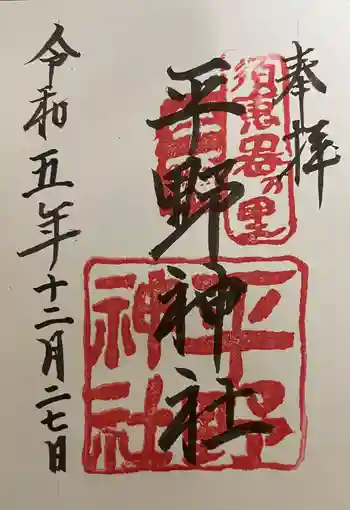 奉拝
須恵器の里
平野神社
平野
神社
令和五年十二月二七日